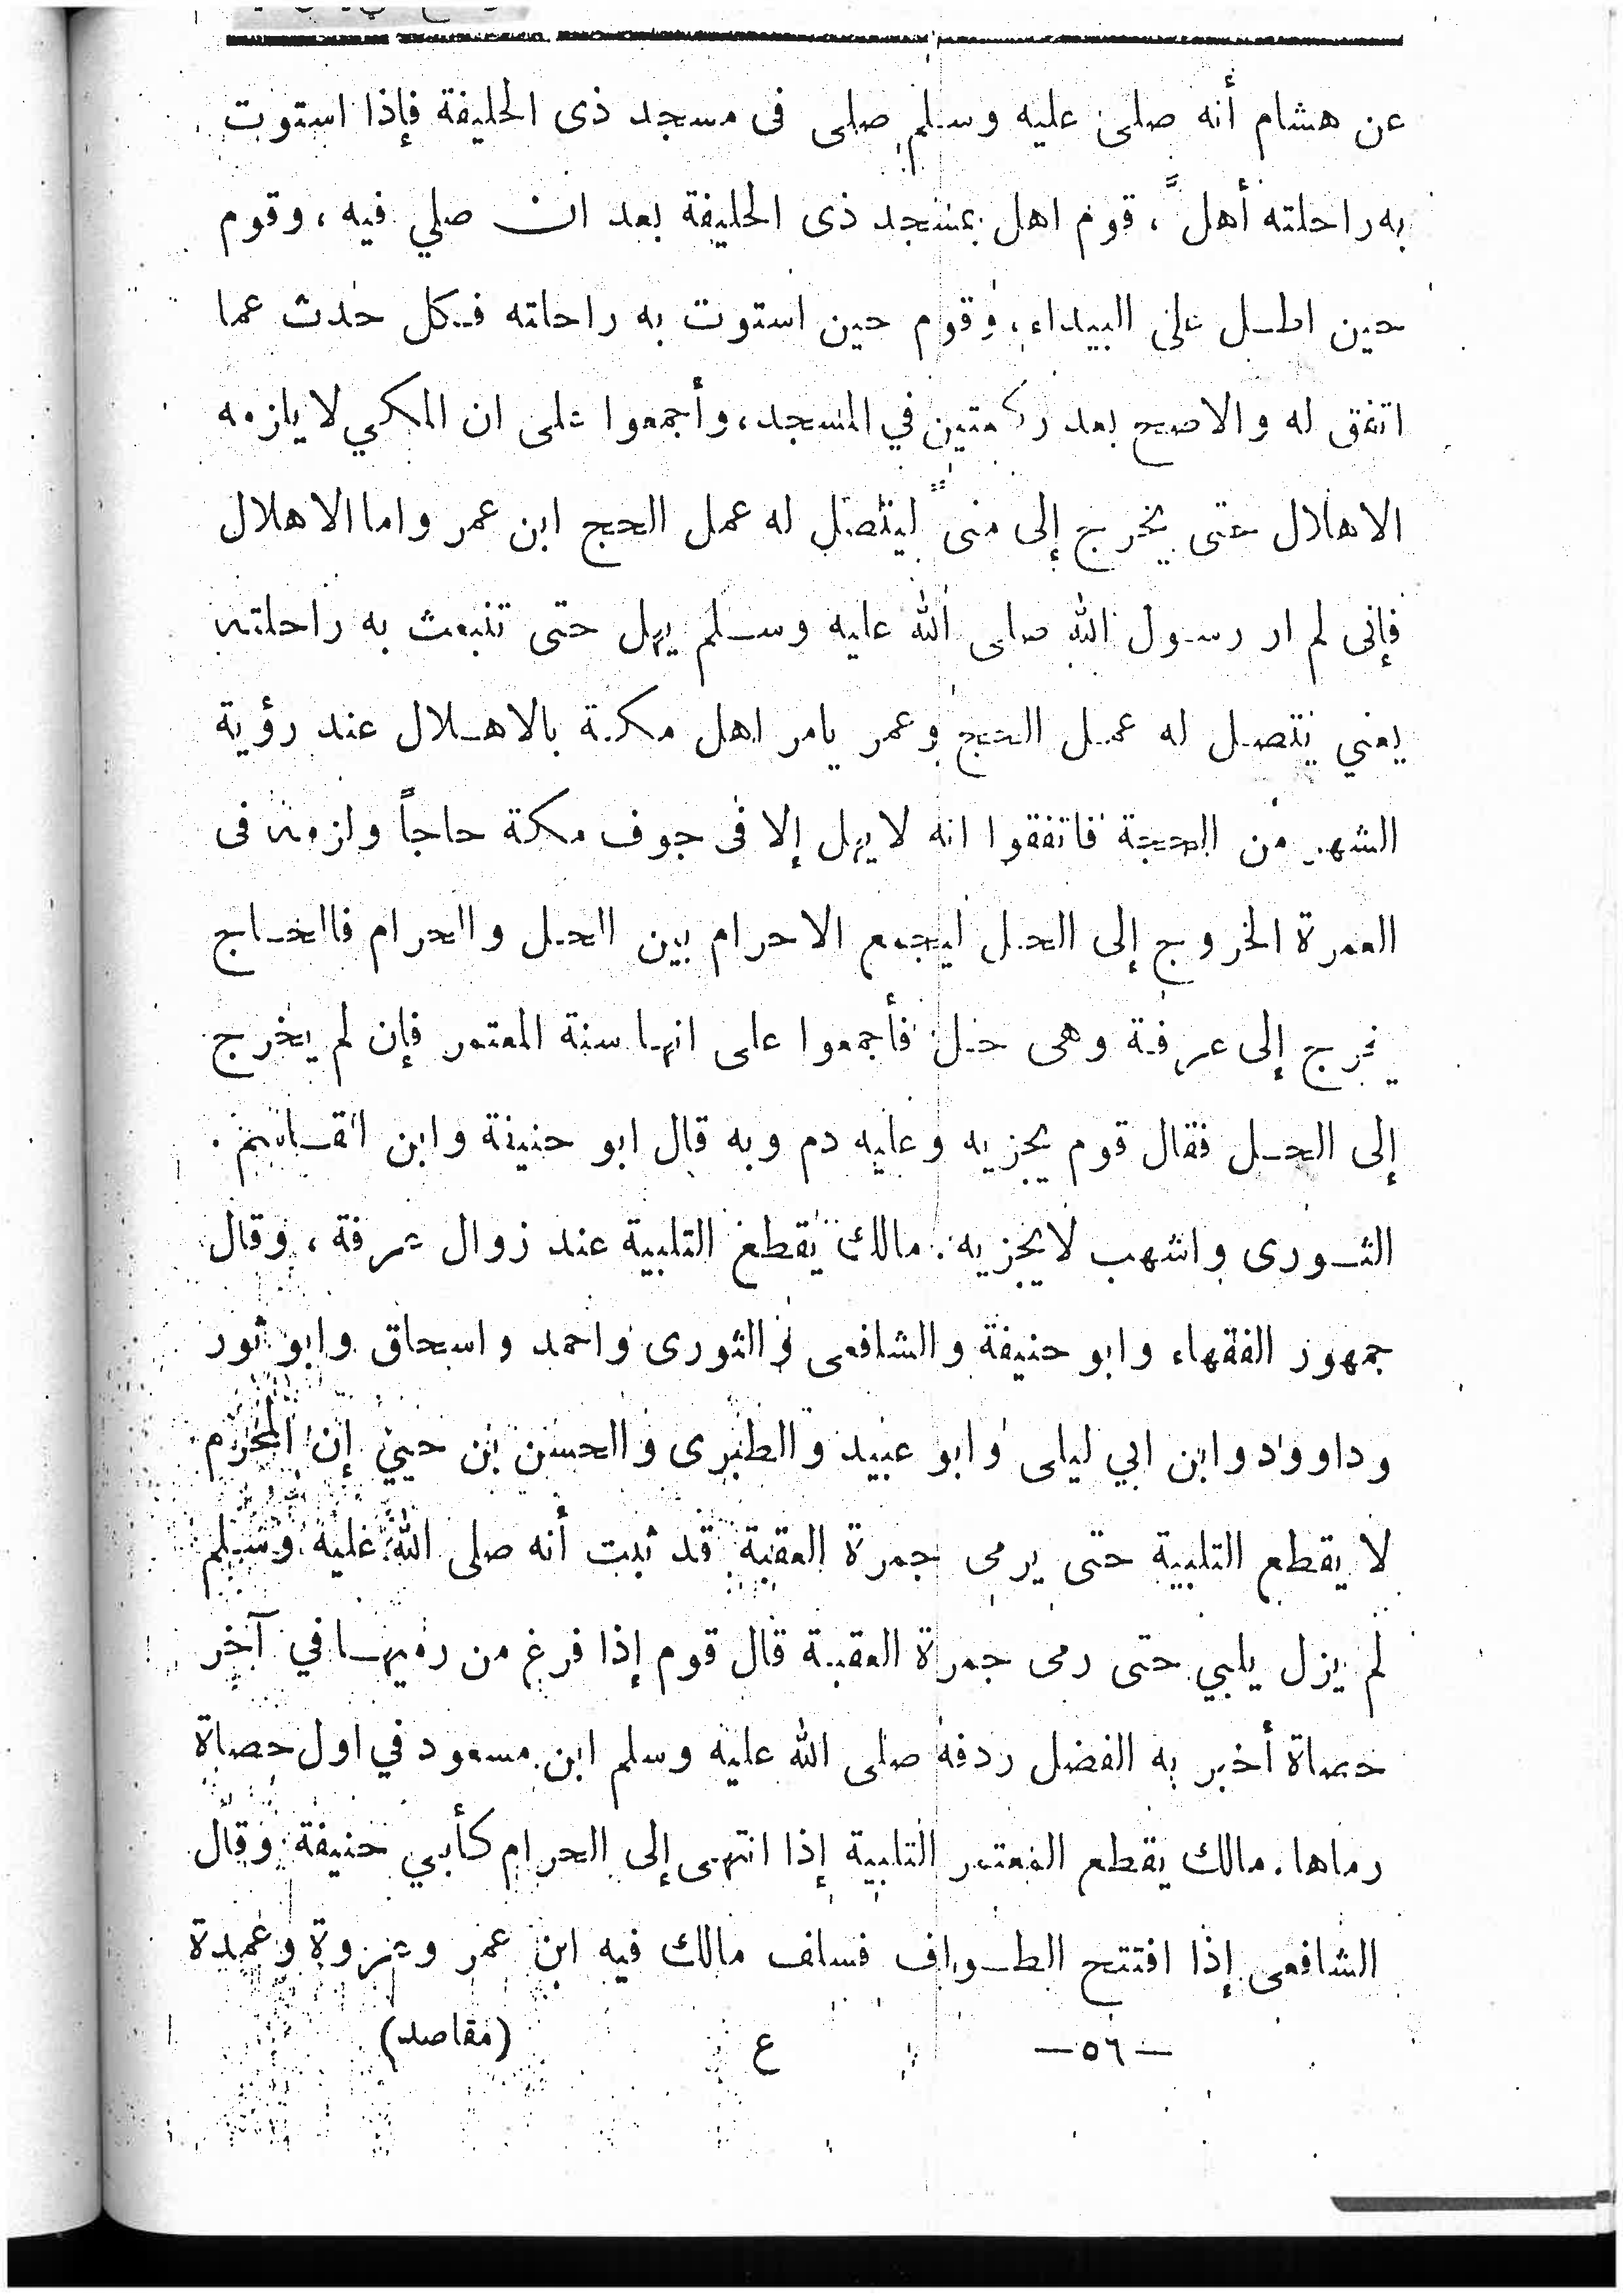 عن هشام أنه صلى عليه وسلم صلى فى مسجد ذى الحليفة فإذا استوت
به راحلته أهلَّ ، قوم اهل بمسجد ذى الحليفة بعد ان صلي فيه ، وقوم
حين اطل على البيداء، وقوم حين استوت به راحلته فكل حدث عما
اتفق له والاصح بعد ركعتين في المسجد، وأجمعوا على ان المكي لا يلزمه
الاهلال حتى يخرج إلى منىً ليتصل له عمل الحج ابن عمر واما الاهلال
فإنى لم ار رسول الله صلى الله عليه وسلم يهل حتى تنبعث به راحلته
يعني يتصل له عمل الحج وعمر يامر اهل مكة بالاهلال عند رؤية
الشهر من الحجة فاتفقوا انه لا يهل إلا فى جوف مكة حاجاً ولزومه فى
العمرة الخروج إلى الحل ليجمع الاحرام بين الحل والحرام فالحاج
يخرج إلى عرفة وهى حل فأجمعوا على انها سنة المعتمر فإن لم يخرج
إلى الحل فقال قوم يجزيه وعليه دم وبه قال ابو حنيفة وابن القاسم .
الثورى واشهب لا يجزيه . مالك يقطع التلبية عند زوال عرفة ، وقال
جمهور الفقهاء وابو حنيفة والشافعى والثورى واحمد واسحاق وابو ثور
وداوود وابن ابي ليلى وابو عبيد والطبرى والحسن بن حيي إن المحرم
لا يقطع التلبية حتى يرمى جمرة العقبة قد ثبت أنه صلى الله عليه وسلم
لم يزل يلبي حتى رمى جمرة العقبة قال قوم إذا فرغ من رميها في آخر
حصاة أخبر به الفضل ردفه صلى الله عليه وسلم ابن مسعود في اول حصاة
رماها . مالك يقطع المعتمر التلبية إذا انتهى إلى الحرام كأبي حنيفة وقال
الشافعى إذا افتتح الطواف فسلف مالك فيه ابن عمر وعروة وعمدة
—٥٦— ع (مقاصد)